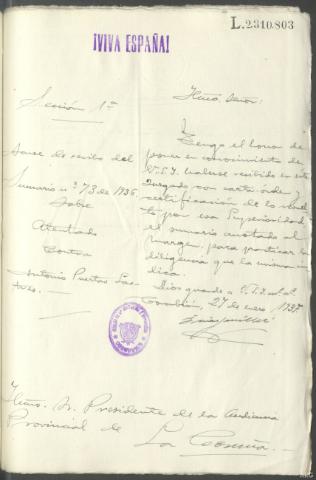 L.2310.803
¡VIVA ESPAÑA!
Sección 1ª
Acuse de recibo del
Sumario nº 73 de 1936
Sobre
Atentado
Contra
Antonio Puertas
Iltmo. Señor:
Tengo el honor de
poner en conocimiento de
V.S.I. haberse recibido en este
Juzgado con carta orden y
certificación de lo
por esa Superioridad
el sumario anotado al
margen, para practicar la
diligencia que la misma in-
dica.
Dios guarde a V.S.I. m. a.
27 de enero 1937.
Iltmo. Sr. Presidente de la Audiencia
Provincial de La Coruña.